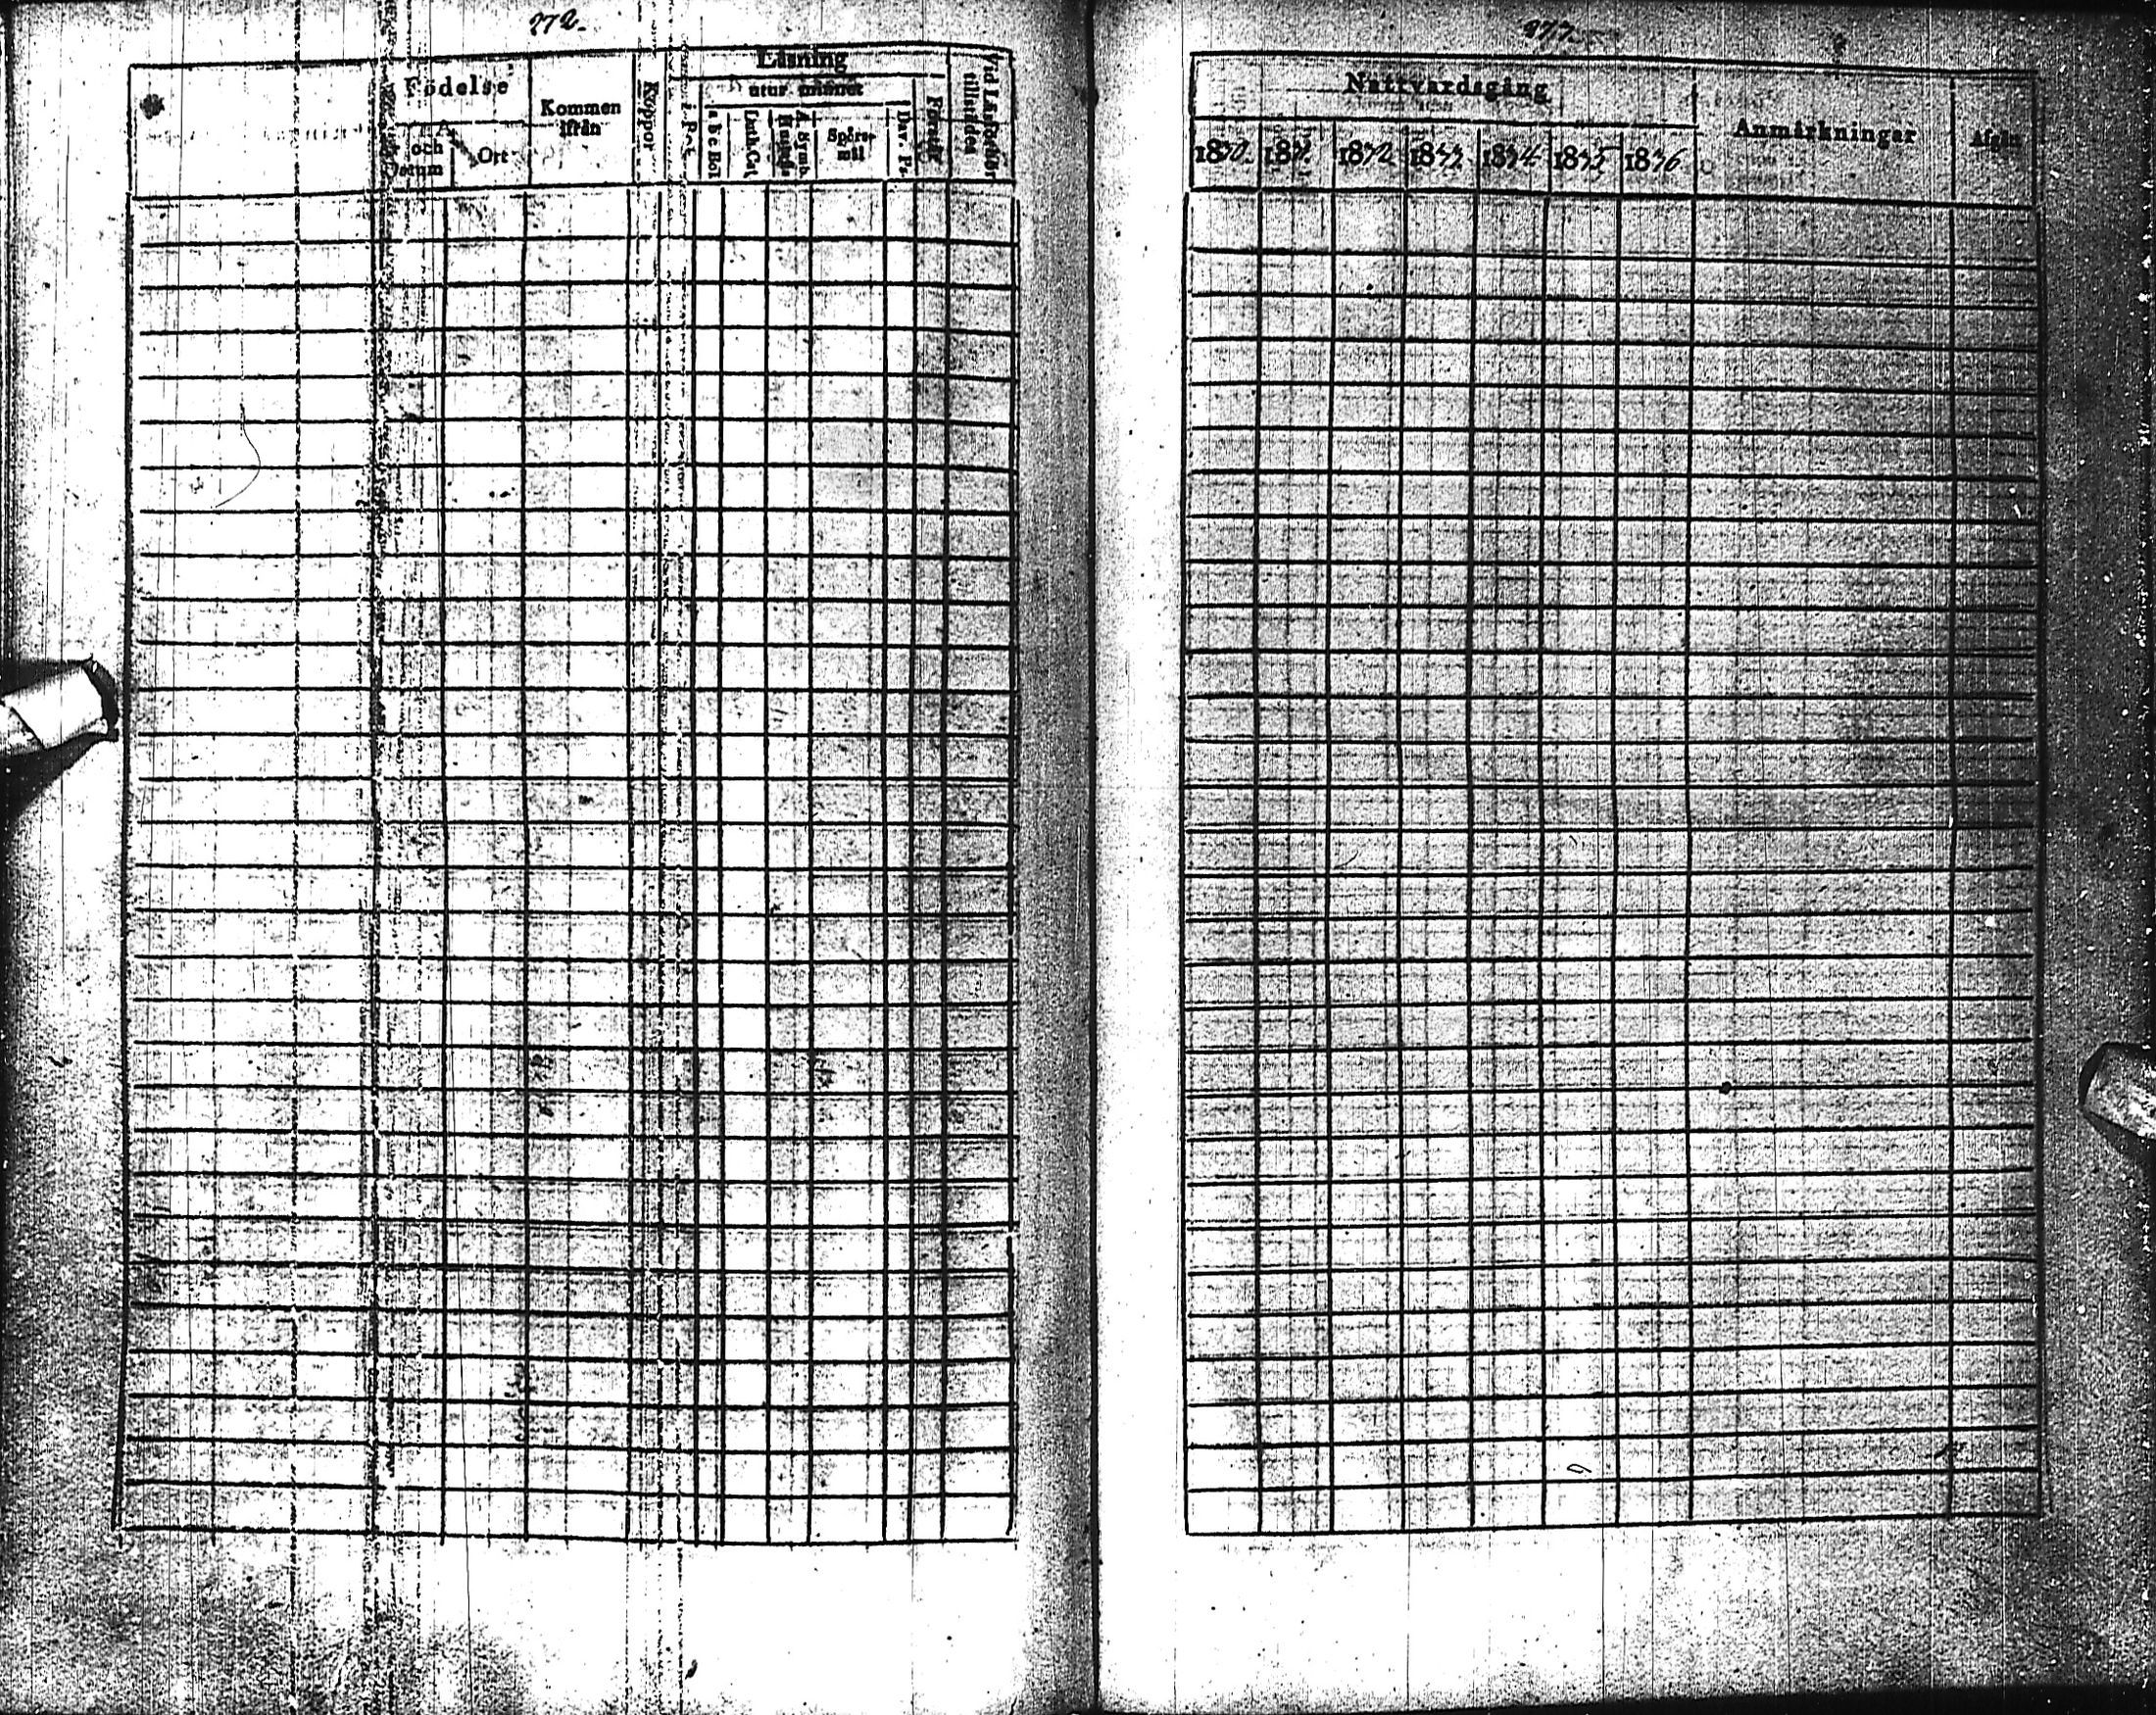 272.
Födelse
Kommen ifrån
Koppor
Läsning
utur minnet
Förstår
Vid Läsförhör tillstädes
År och Datum
Ort
i Bok
a b c Bok
Luth. Cat.
A. Symb. Hustafla
Spörsmål
Dav. Ps.
273.
Nattvardsgång
Anmärkningar
Afgått
1830. 1831. 1832 1833. 1834 1835 1836